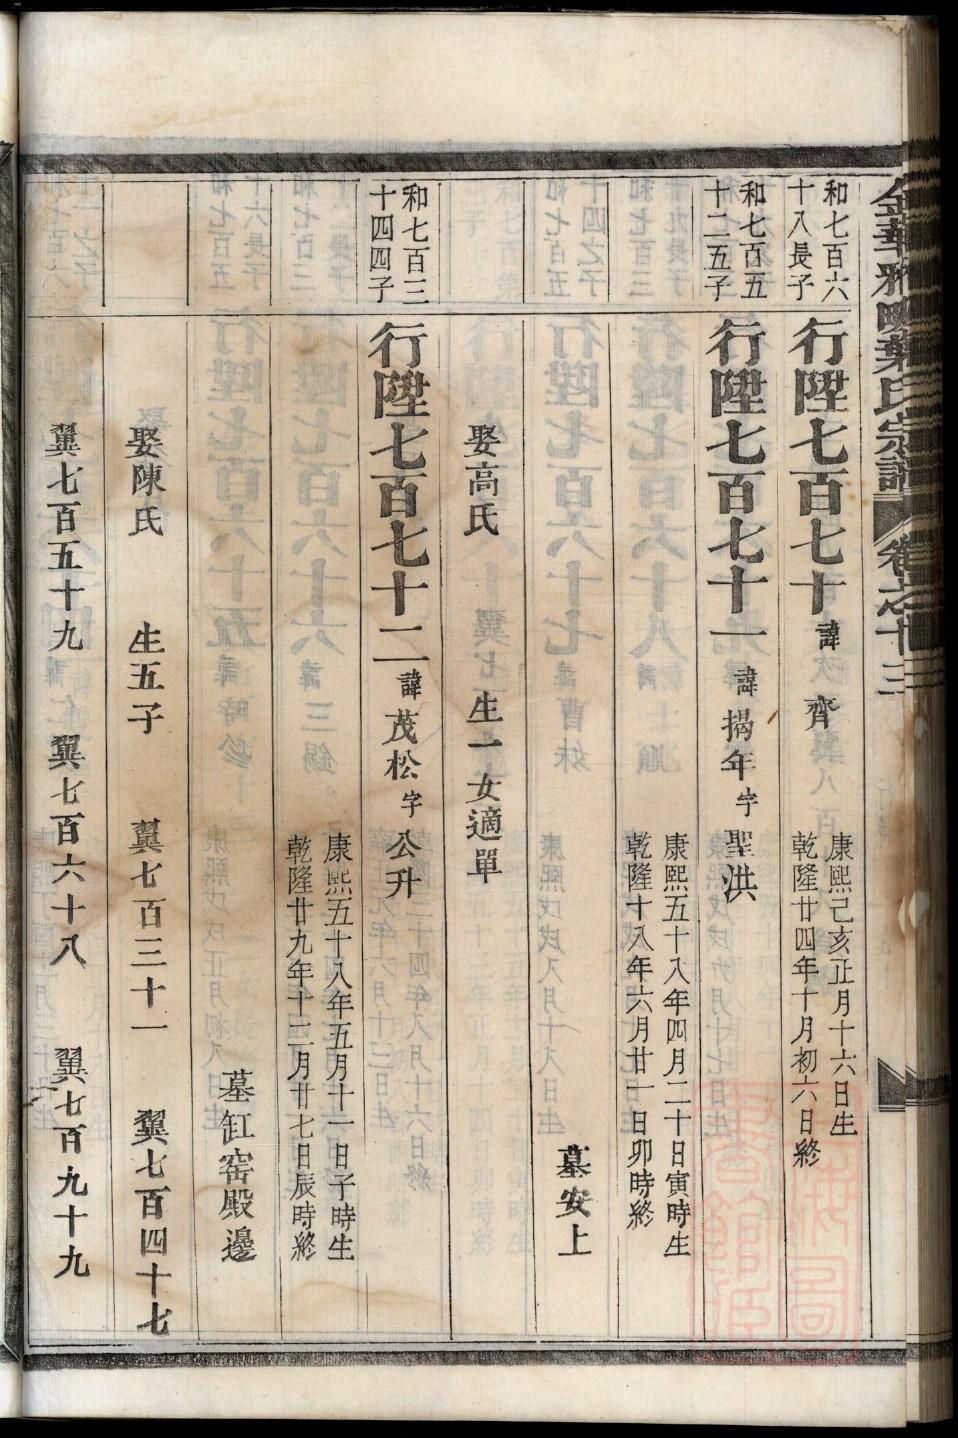 金華雅畈葉氏宗譜 卷之十三
和七百六
十八長子
行陞七百七十 諱 齊
康熙己亥正月十六日生
乾隆廿四年十月初六日終
和七百五
十二五子
行陞七百七十一 諱揭年 字聖洪
康熙五十八年四月二十日寅時生
乾隆十八年六月廿一日卯時終
墓安上
娶高氏 生一女適單
和七百三
十四四子
行陞七百七十二 諱茂松 字公升
康熙五十八年五月十一日子時生
乾隆廿九年十二月廿七日辰時終
墓缸窑殿邊
娶陳氏 生五子 翼七百三十一 翼七百四十七
翼七百五十九 翼七百六十八 翼七百九十九